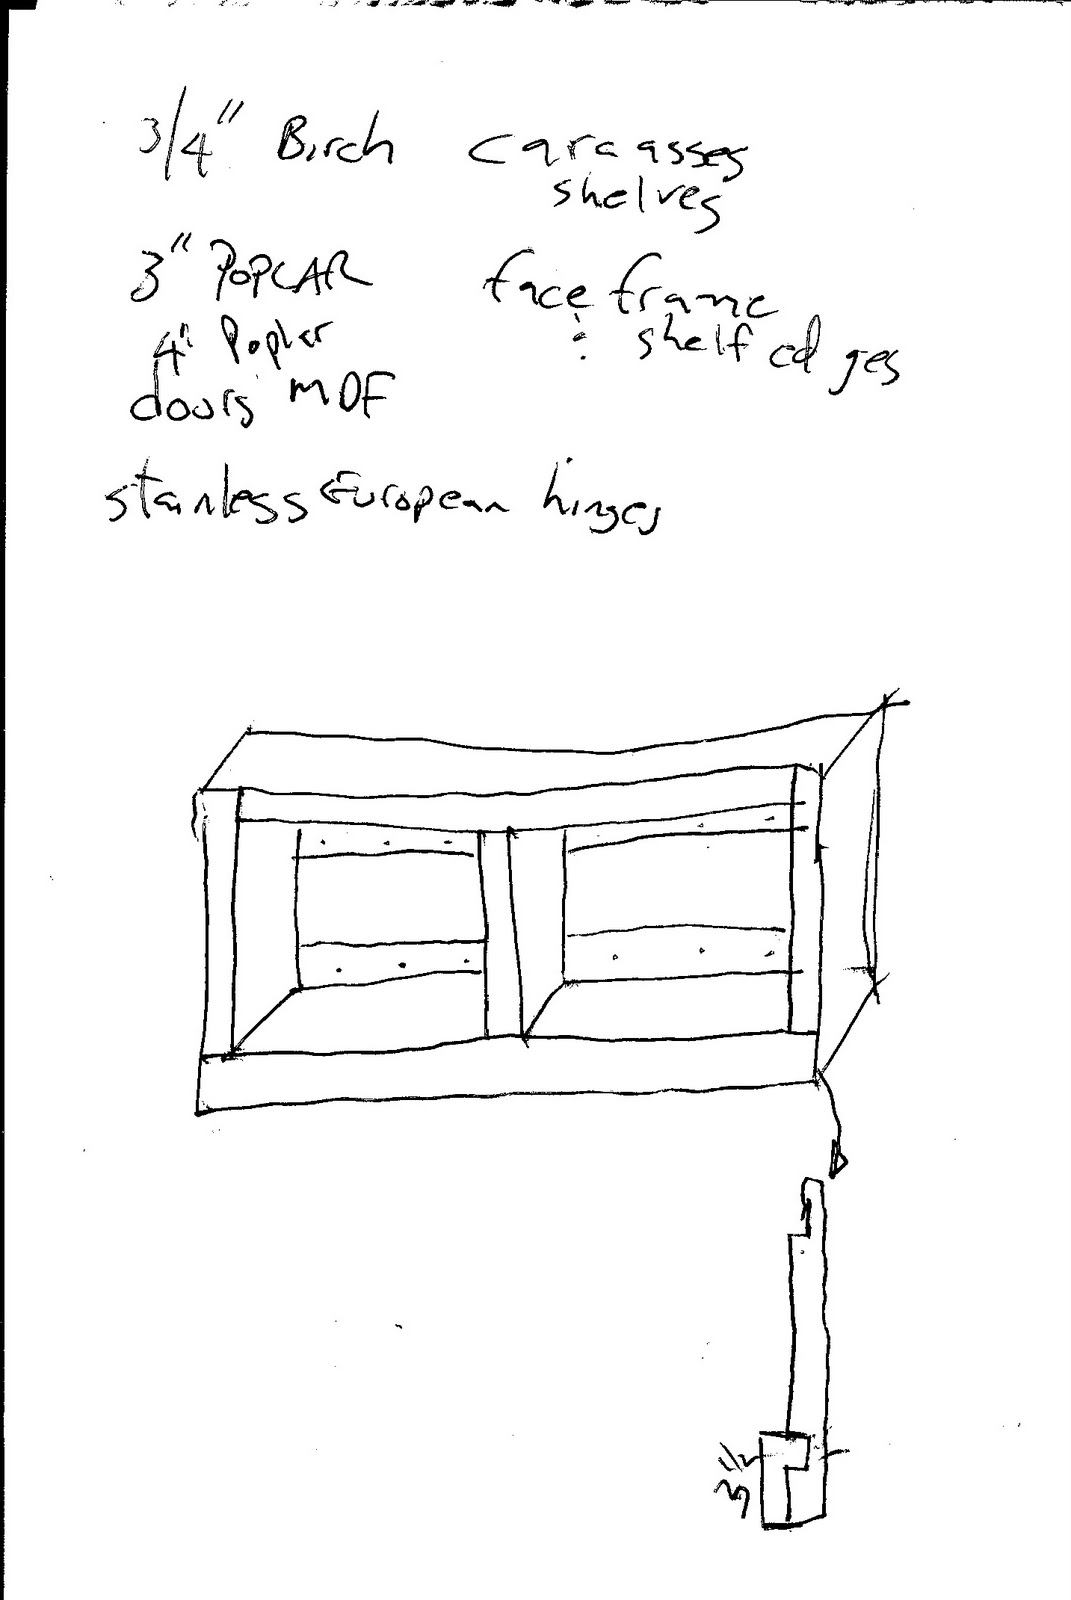 3/4" Birch carcasses
shelves
3" POPLAR face frame
4" Poplar : shelf edges
doors MDF
stainless European hinges